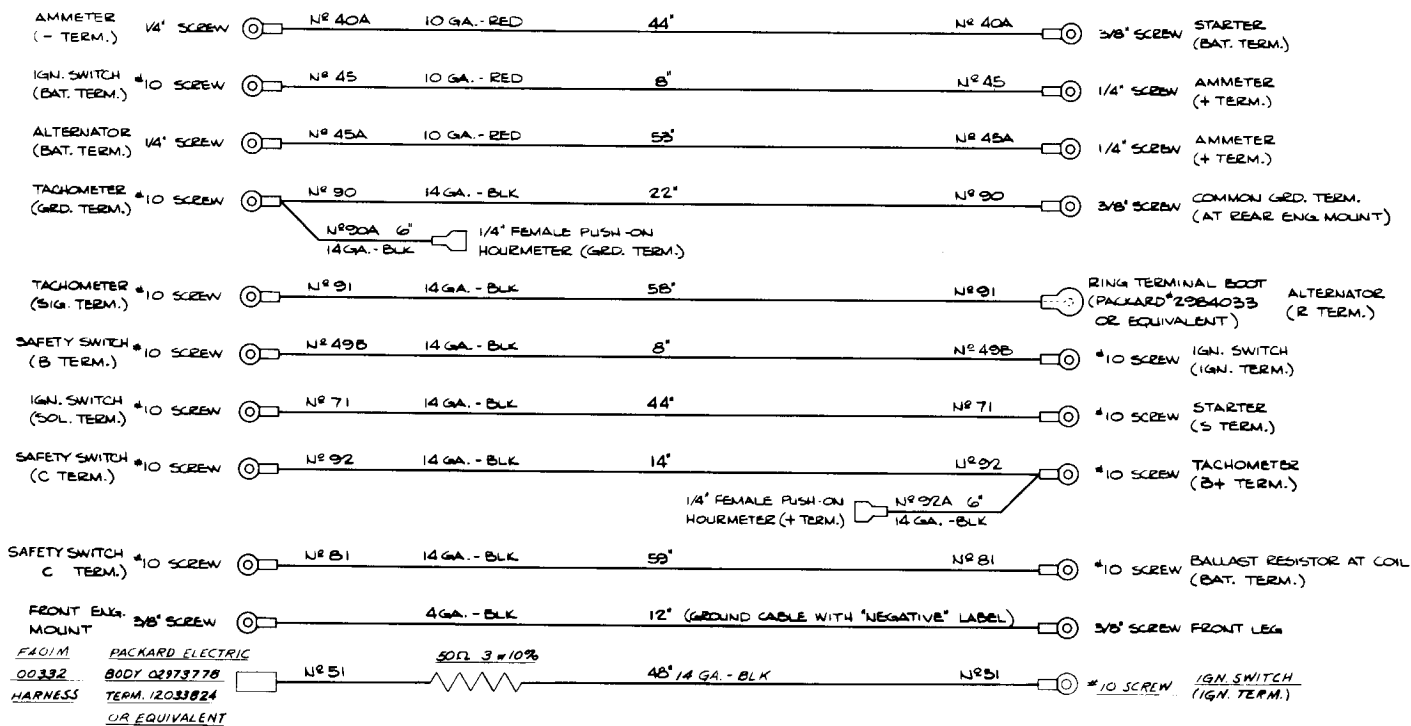 AMMETER
(- TERM.)
1/4" SCREW
Nº 40A
10 GA.-RED
44"
Nº 40A
3/8" SCREW
STARTER
(BAT. TERM.)
IGN. SWITCH
(BAT. TERM.)
#10 SCREW
Nº 45
10 GA.-RED
8"
Nº 45
1/4" SCREW
AMMETER
(+ TERM.)
ALTERNATOR
(BAT. TERM.)
1/4" SCREW
Nº 45A
10 GA.-RED
53"
Nº 45A
1/4" SCREW
AMMETER
(+ TERM.)
TACHOMETER
(GRD. TERM.)
#10 SCREW
Nº 90
14 GA.-BLK
22"
Nº 90
3/8" SCREW
COMMON GRD. TERM.
(AT REAR ENG MOUNT)
Nº90A 6"
14 GA.-BLK
1/4" FEMALE PUSH-ON
HOURMETER (GRD. TERM.)
TACHOMETER
(SIG. TERM.)
#10 SCREW
Nº 91
14 GA.-BLK
58"
Nº91
RING TERMINAL BOOT
(PACKARD #2984033
OR EQUIVALENT)
ALTERNATOR
(R TERM.)
SAFETY SWITCH
(B TERM.)
#10 SCREW
Nº 49B
14 GA.-BLK
8"
Nº 49B
#10 SCREW
IGN. SWITCH
(IGN. TERM.)
IGN. SWITCH
(SOL. TERM.)
#10 SCREW
Nº 71
14 GA.-BLK
44"
Nº 71
#10 SCREW
STARTER
(S TERM.)
SAFETY SWITCH
(C TERM.)
#10 SCREW
Nº 92
14 GA.-BLK
14"
Nº 92
#10 SCREW
TACHOMETER
(B+ TERM.)
1/4" FEMALE PUSH-ON
HOURMETER (+ TERM.)
Nº 92A 6"
14 GA.-BLK
SAFETY SWITCH
C TERM.)
#10 SCREW
Nº 81
14 GA.-BLK
59"
Nº 81
#10 SCREW
BALLAST RESISTOR AT COIL
(BAT. TERM.)
FRONT ENG.
MOUNT
3/8" SCREW
4 GA.-BLK
12" (GROUND CABLE WITH "NEGATIVE" LABEL)
3/8" SCREW
FRONT LEG
FA01M
00332
HARNESS
PACKARD ELECTRIC
BODY 02973778
TERM. 12033824
OR EQUIVALENT
Nº 51
50Ω 3 W 10%
48" 14 GA.-BLK
Nº51
#10 SCREW
IGN. SWITCH
(IGN. TERM.)